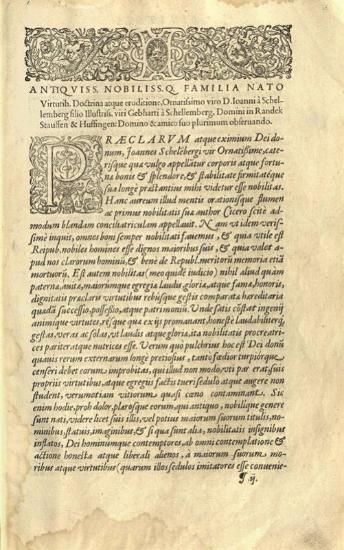 ANTIQVISS. NOBILISS.Q. FAMILIA NATO
Virtutib. Doctrina atque eruditione, Ornatissimo viro D. Ioanni à Schel-
lemberg filio Illustris. viri Gebharti à Schellemberg, Domini in Randek
Stauffen & Huffingen: Domino & amico suo plurimum obseruando.
PRÆCLARVM atque eximium Dei do-
num, Joannes Schelēbergi vir Ornatißime, cæte-
risque quæ vulgo appellātur corporis atque fortu-
næ bonis & splendore, & stabilitate firmitateque
sua longè præstantius mihi videtur esse nobilitas.
Hanc aureum illud mentis orationisque flumen
ac primus nobilitatis suæ author Cicero scitè ad-
modum blandam conciliatriculam appellauit. Nam vt idem verißi-
mè inquit, omnes boni semper nobilitati fauemus, & quia vtile est
Reipub. nobiles homines esse dignos maioribus suis, & quia valet a-
pud nos clarorum hominū, & bene de Republ. meritorū memoria etiā
mortuorū. Est autem nobilitas (meo quidē iudicio) nihil aliud quàm
paterna, auita, maiorumque egregia laudis gloria, atque fama, honoris,
dignitatis præclaris virtutibus rebusque gestis comparata hæreditaria
quædā successio, possessio, atque patrimoniū. Vnde satis cōstat ingenij
animique virtutes, résque quæ ex ijs promanant, honestè laudabiliterque
gestas, veras ac solas, vt laudis atque gloriæ, ita nobilitatis procreatri-
ces pariter atque nutrices esse. Verùm quò pulchrius hoc est Dei donū
quauis rerum externarum longè pretiosius, tantò fœdior turpiorque
censeri debet eorum improbitas, qui illud non modò, vti par erat, suis
proprijs virtutibus, atque egregijs factis tueri sedulò atque augere non
student, verumetiam vitiorum quasi cœno contaminant. Sic
enim hodie, proh dolor, plerosque eorum, qui antiquo, nobilique genere
sunt nati, videre licet suis illis, vel potius maiorum suorum titulis, no-
minibus, statuis, imaginibus, & si qua sunt alia, nobilitatis insignibus
inflatos, Dei hominumque contemptores, ab omni contemplatione &
actione honesta atque liberali alienos, à maiorum suorum mo-
ribus atque virtutibus (quarum illos sedulos imitatores esse conuenie-
¶ ij.